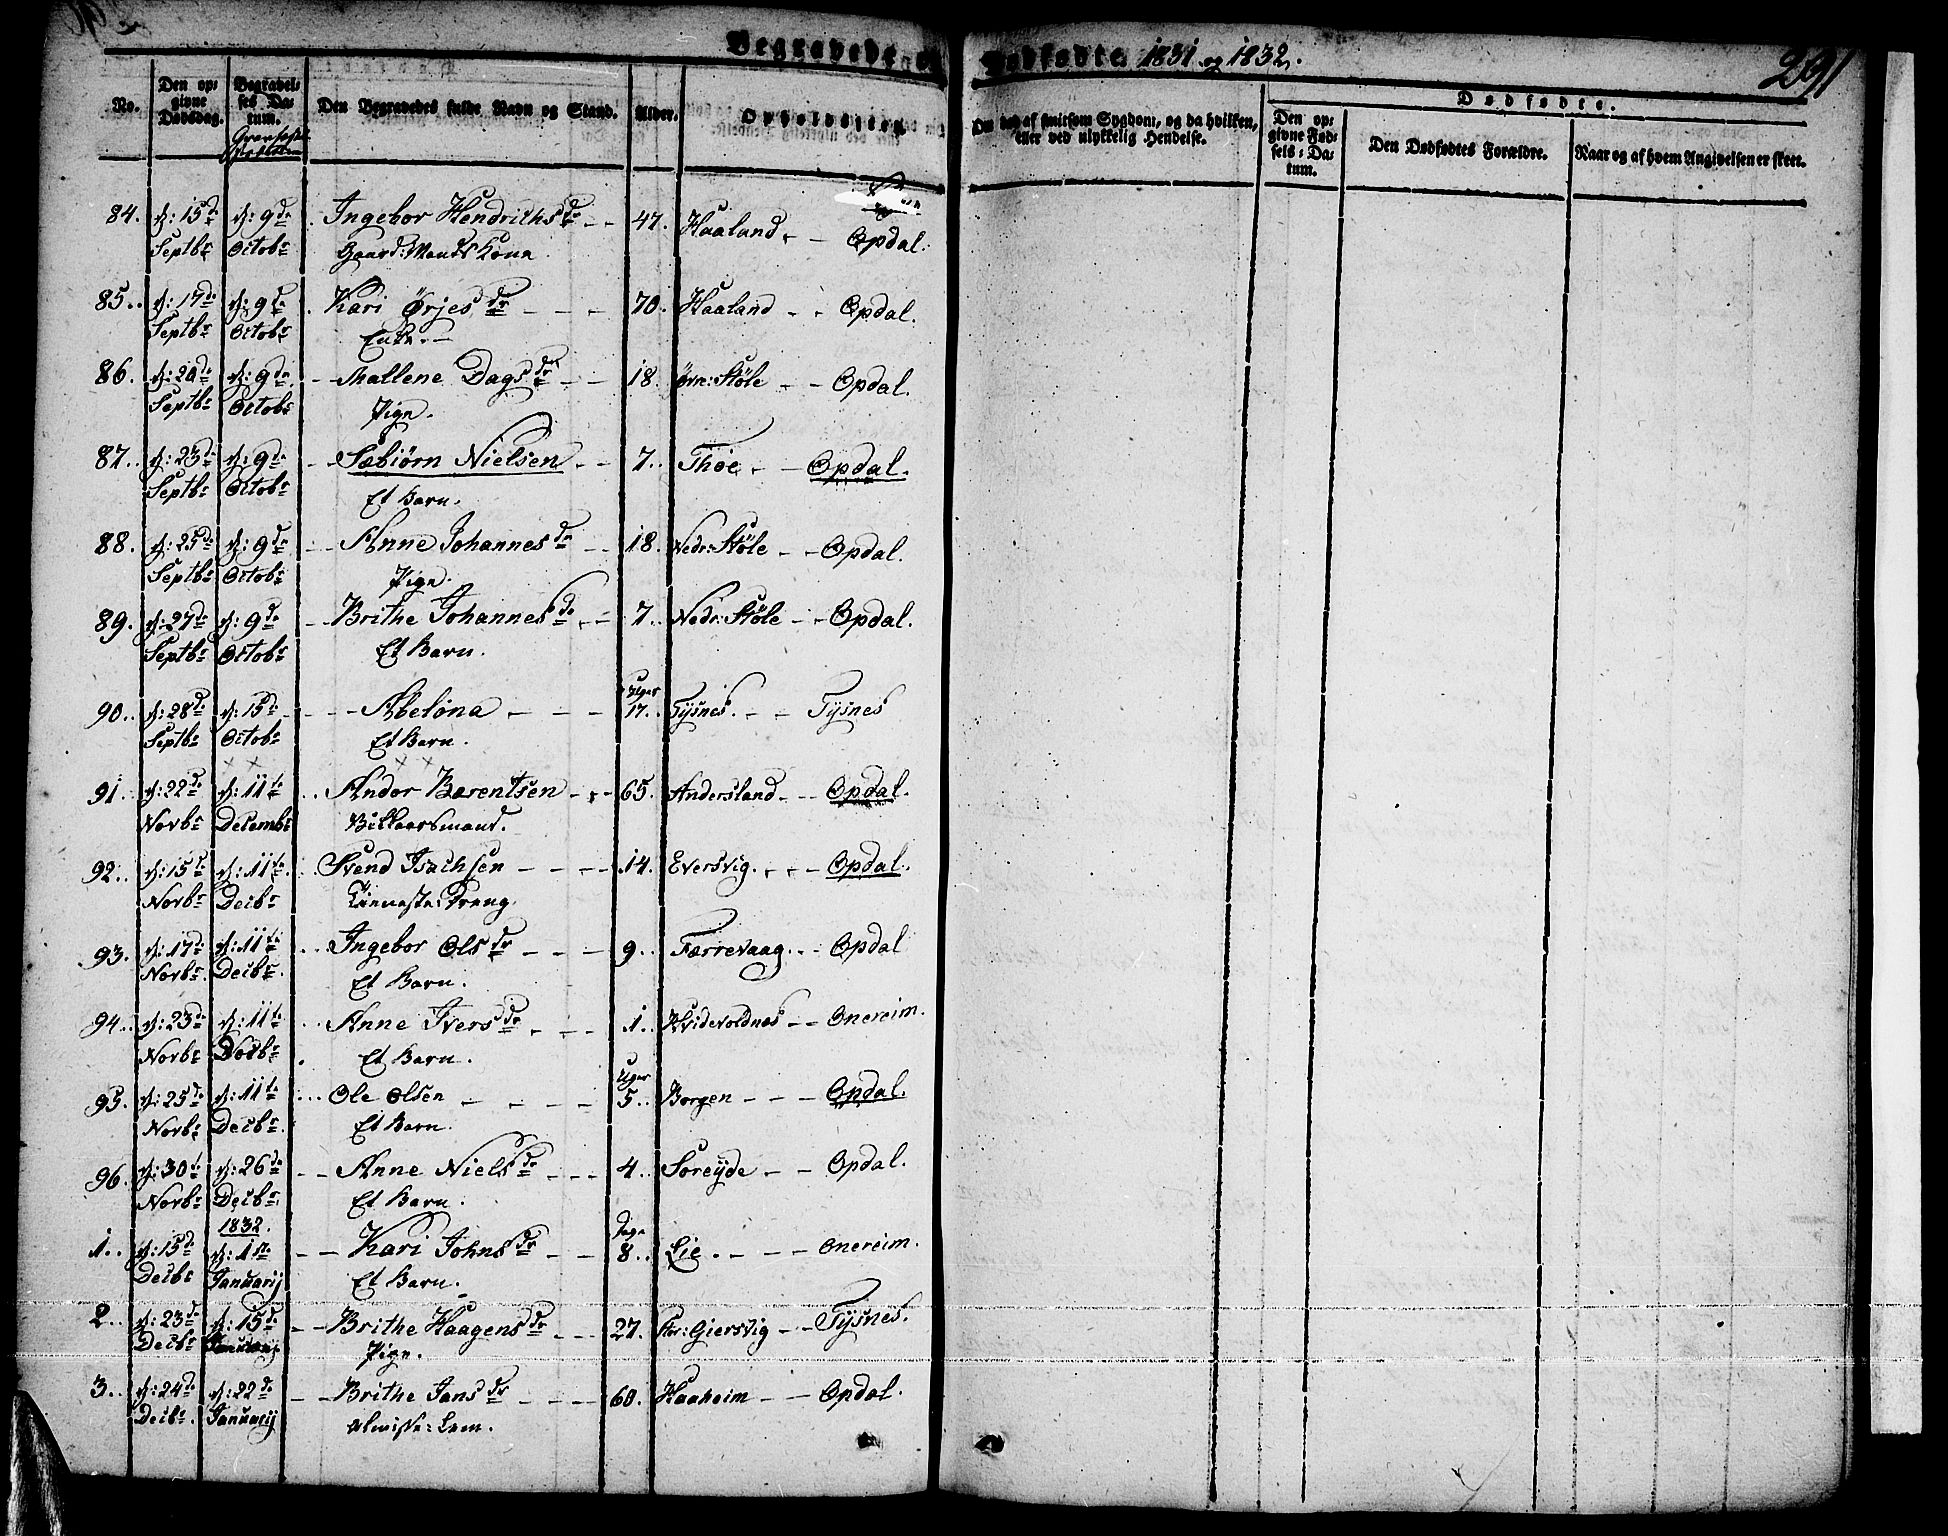 Begravede og Dødfødte. 1831 og 1832.
291
No.
Den op-
givne
Dødsdag.
Begravel-
ses Da-
tum.
Den Begravedes fulde Navn og Stand.
Alder.
Opholdssted.
Om død af smitsom Sygdom, og da hvilken,
eller ved ulykkelig Hendelse.
Dødfødte.
Den op-
givne Fød-
sels-Da-
tum.
Den Dødfødtes Forældre.
Naar og af hvem Angivelsen er skeet.
84. d: 15de d: 9de Ingebor Hendrichsdr 47. Haaland. Opdal.
Septbr Octobr Gaard-Mands Kone.
85.. d: 17de d: 9de Kari Ørjesdr 70. Haaland Opdal.
Septbr Octobr Enke.
86. d: 20de d: 9de Mallene Dagsdr 18. Øvre: Støle Opdal.
Septbr Octobr Pige.
87.. d: 23de d: 9de Sæbiørn Nielsen 7.. Thøe Opdal.
Septbr Octobr Et Barn.
88. d: 25de d: 9de Anne Johannesdr 18. Nedr: Støle Opdal.
Septbr Octobr Pige.
89. d: 27de d: 9de Brithe Johannesdr 7.. Nedr: Støle Opdal.
Septbr Octobr Et Barn.
Uger
90.. d: 28de d: 15de Abelona 17.. Tysnes. Tysnes
Septbr Octobr Et Barn.
91.. d: 22de d: 11te Andor Bærentsen 65. Andersland Opdal.
Novbr Decembr
92.. d: 15de d: 11te Svend Isachsen 14. Eversvig. Opdal.
Novbr Decbr Dreng.
93. d: 17de d: 11te Ingebor Olsdr 9.. Færrevaag. Opdal
Novbr Decbr Et Barn.
94.. d: 23de d: 11te Anne Iversdr 1.. Hvidevoldnes Onereim.
Novbr Novbr Et Barn.
Uger
95. d: 25de d: 11te Ole Olsen 5.. Borgen Opdal.
Novbr Decbr Et Barn.
96. d: 30te d: 26de Anne Nielsdr 4.. Søreyde Opdal.
Novbr Decbr Et Barn.
1832.
Dage
1.. d: 15de d: 1ste Kari Johnsdr 8.. Lie. Onereim.
Decbr Januarij Et Barn.
2.. d: 23de d: 15de Brithe Haagensdr 27. Stor: Giersvig Tysnes.
Decbr Januarij Pige.
3.. d: 24de d: 22de Brithe Jansdr 60. Haaheim Opdal.
Decbr. Januarij Almisse: Lem.